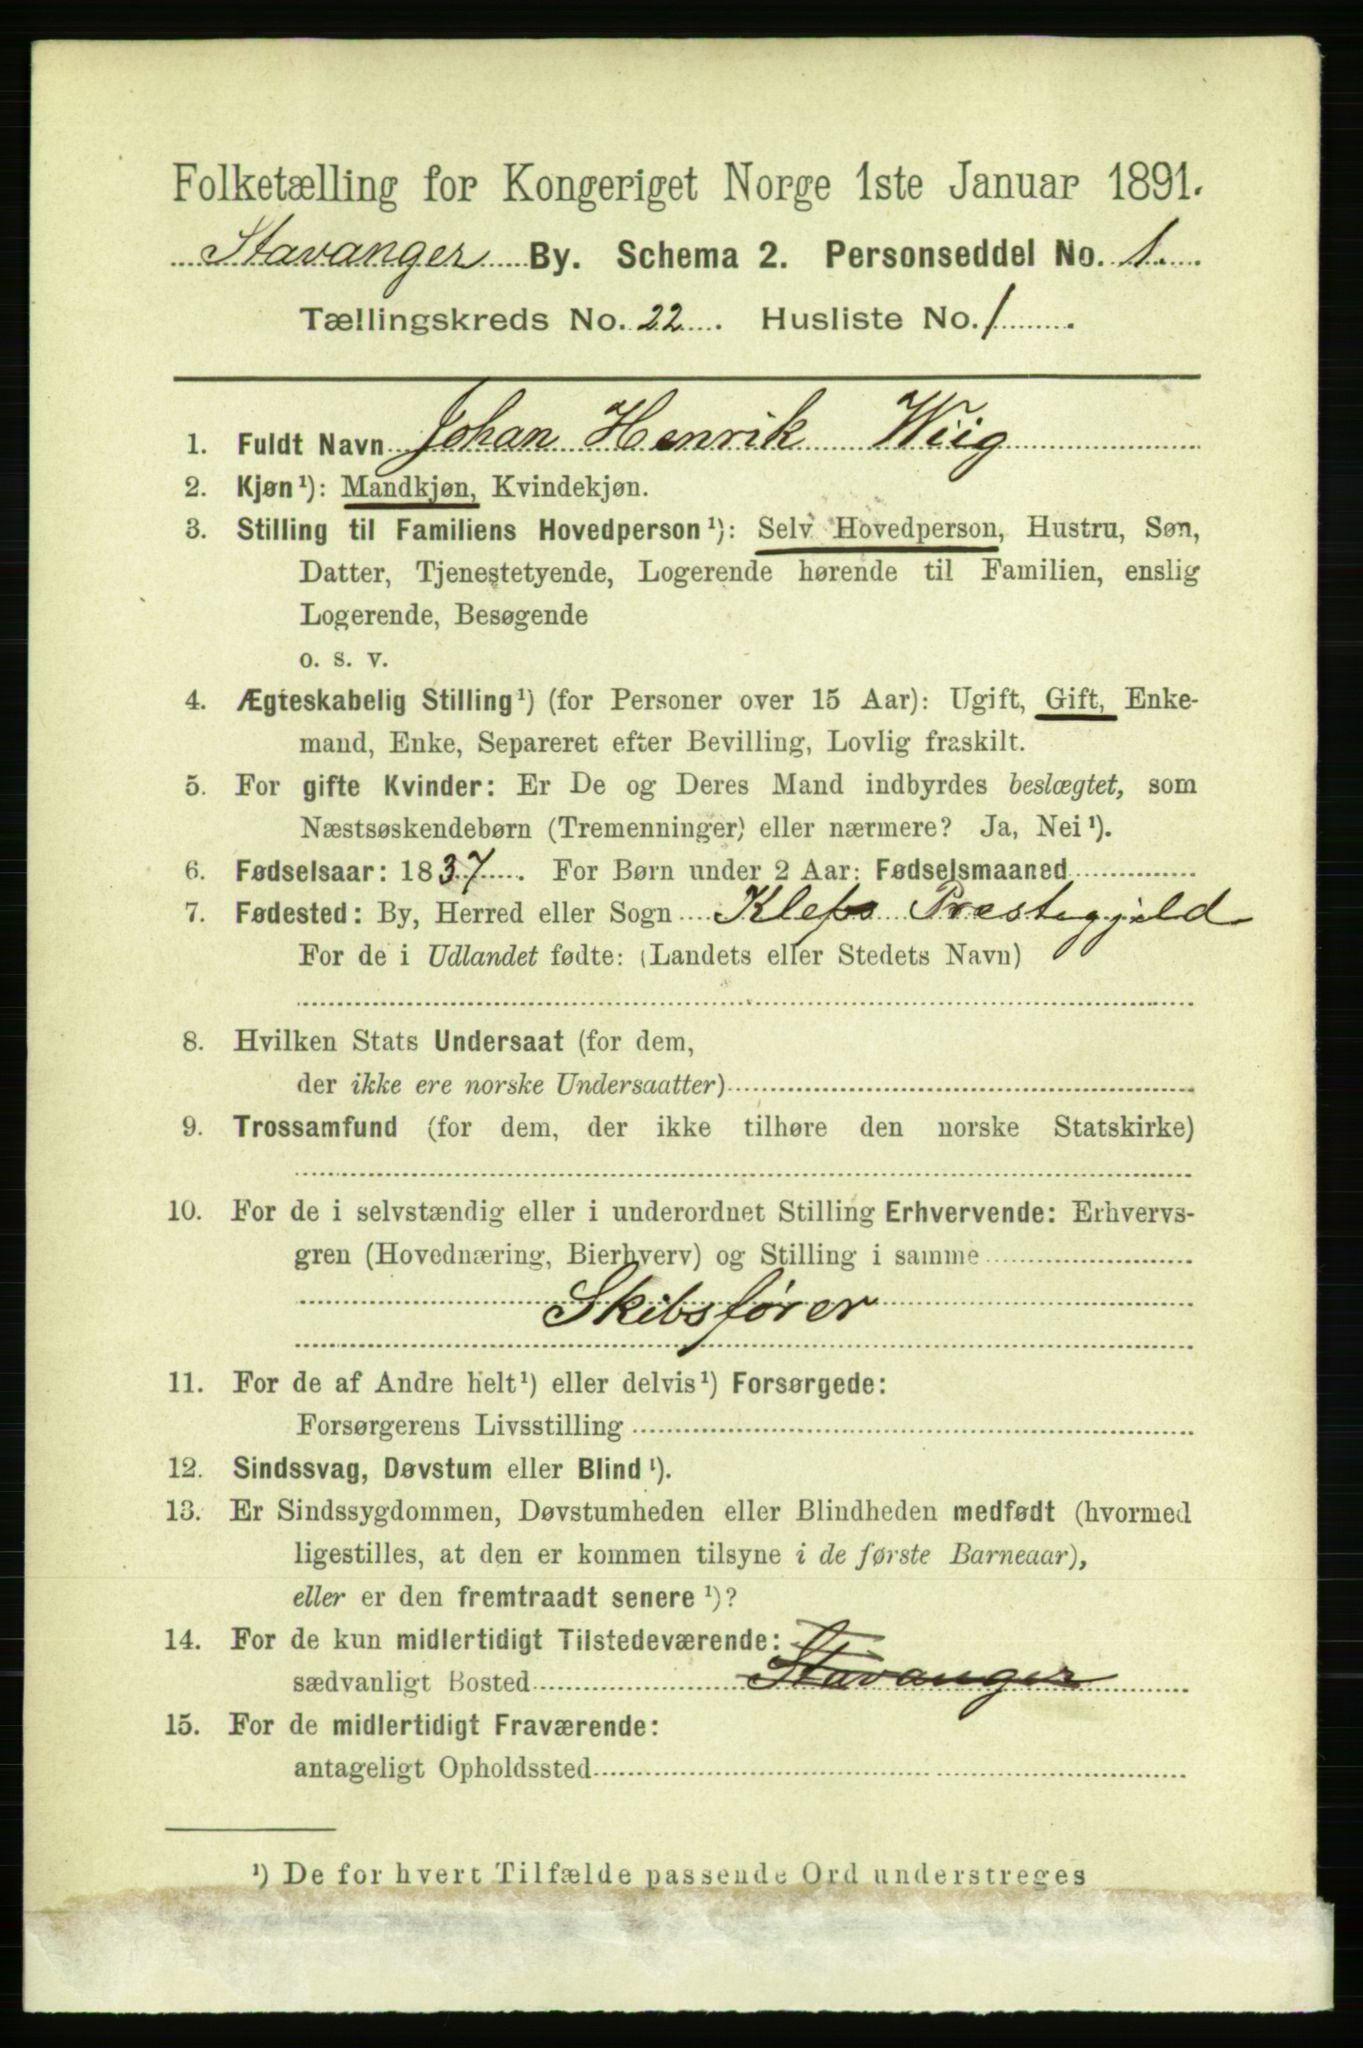 Folketælling for Kongeriget Norge 1ste Januar 1891.
Stavanger By. Schema 2. Personseddel No. 1.
Tællingskreds No. 22. Husliste No. 1
1. Fuldt Navn Johan Henrik Wiig
2. Kjøn¹): Mandkjøn, Kvindekjøn.
3. Stilling til Familiens Hovedperson¹): Selv Hovedperson, Hustru, Søn,
Datter, Tjenestetyende, Logerende hørende til Familien, enslig
Logerende, Besøgende
o. s. v.
4. Ægteskabelig Stilling¹) (for Personer over 15 Aar): Ugift, Gift, Enke-
mand, Enke, Separeret efter Bevilling, Lovlig fraskilt.
5. For gifte Kvinder: Er De og Deres Mand indbyrdes beslægtet, som
Næstsøskendebørn (Tremenninger) eller nærmere? Ja, Nei¹).
6. Fødselsaar: 1837. For Børn under 2 Aar: Fødselsmaaned
7. Fødested: By, Herred eller Sogn Kleps Præstegjeld
For de i Udlandet fødte: (Landets eller Stedets Navn)
8. Hvilken Stats Undersaat (for dem,
der ikke ere norske Undersaatter)
9. Trossamfund (for dem, der ikke tilhøre den norske Statskirke)
10. For de i selvstændig eller i underordnet Stilling Erhvervende: Erhvervs-
gren (Hovednæring, Bierhverv) og Stilling i samme
Skibsfører
11. For de af Andre helt¹) eller delvis¹) Forsørgede:
Forsørgerens Livsstilling
12. Sindssvag, Døvstum eller Blind¹).
13. Er Sindssygdommen, Døvstumheden eller Blindheden medfødt (hvormed
ligestilles, at den er kommen tilsyne i de første Barneaar),
eller er den fremtraadt senere¹)?
14. For de kun midlertidigt Tilstedeværende:
sædvanligt Bosted Stavanger
15. For de midlertidigt Fraværende:
antageligt Opholdssted
¹) De for hvert Tilfælde passende Ord understreges